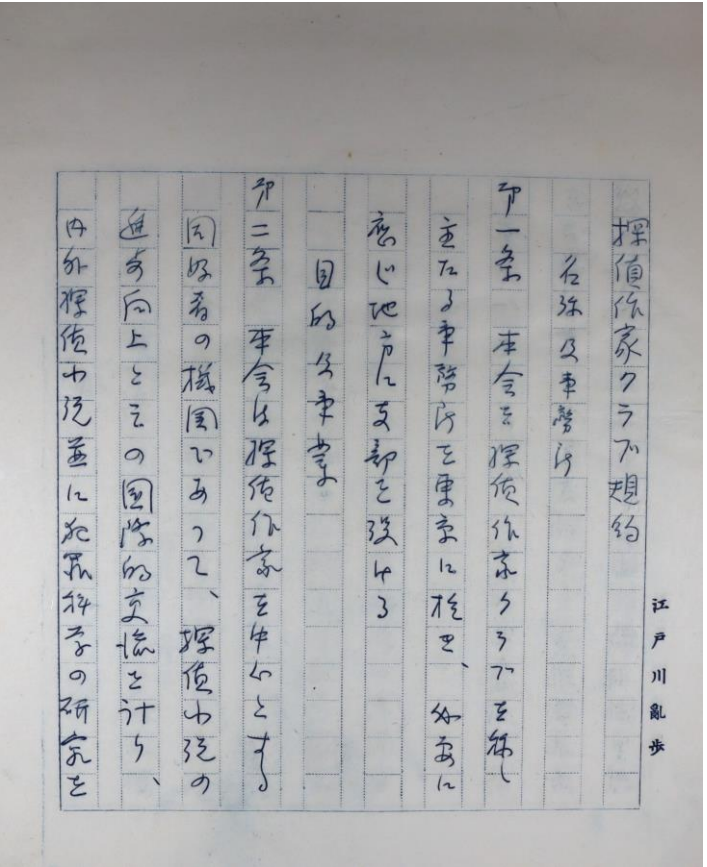 江戸川亂歩
探偵作家クラブ規約
名称及事務所
第一条　本会を探偵作家クラブと称し
主たる事務所を東京に置き、必要に
應じ地方に支部を設ける
目的及事業
第二条　本会は探偵作家を中心とする
同好者の機関であつて、探偵小説の
進歩向上とその国際的交流を計り、
内外探偵小説並に犯罪科学の研究を